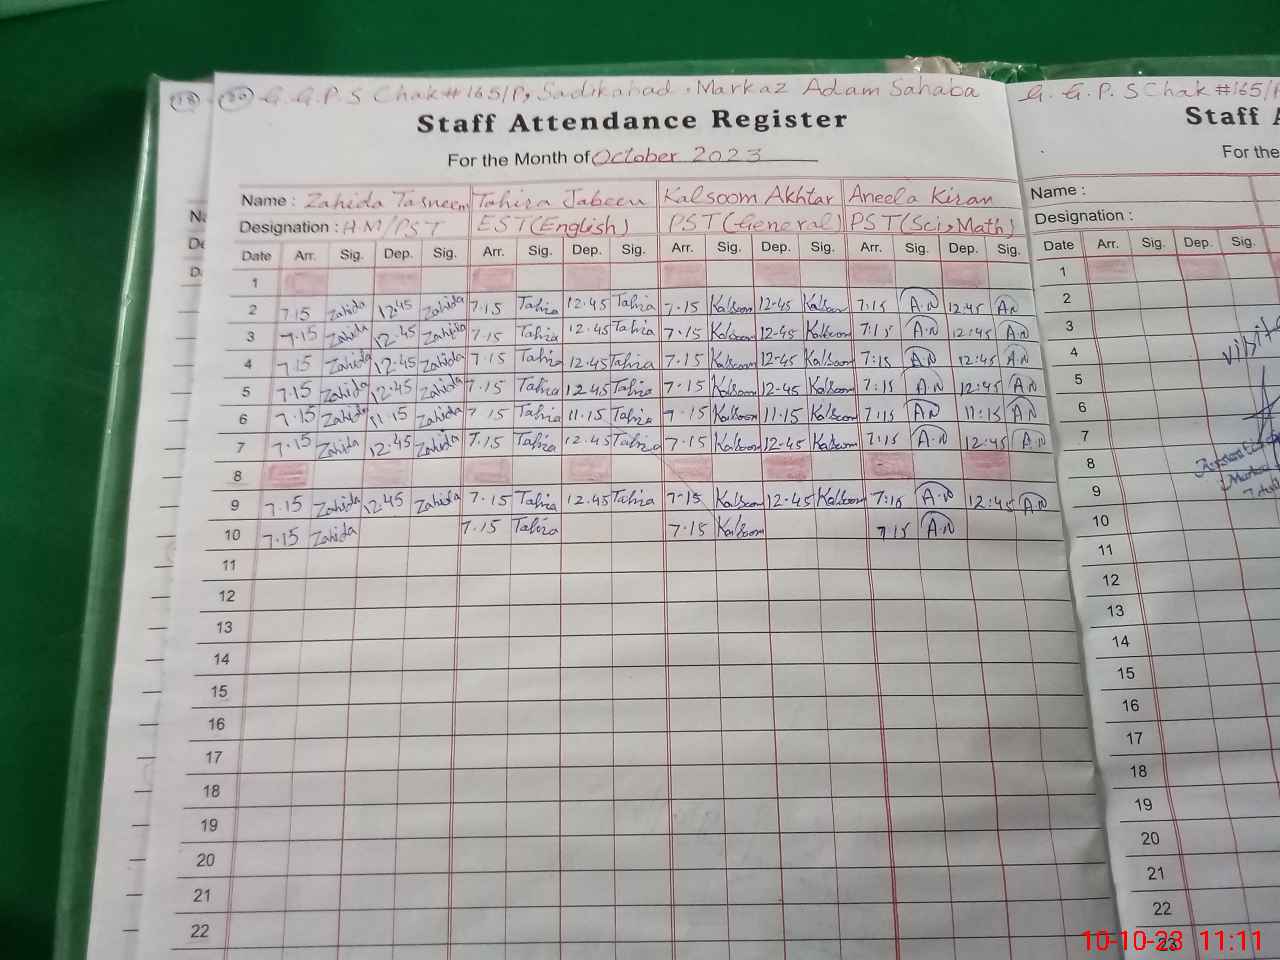 18 20 G.G.P.S Chak#165/P, Sadikabad, Markaz Adam Sahaba
Staff Attendance Register
For the Month of October 2023
Name : Zahida Tasneem Tahira Jabeen Kalsoom Akhtar Aneela Kiran
Designation : H.M/PST EST(English) PST(General) PST(Sci,Math)
Date Arr. Sig. Dep. Sig. Arr. Sig. Dep. Sig. Arr. Sig. Dep. Sig. Arr. Sig. Dep. Sig.
1
2 7.15 Zahida 12.45 Zahida 7.15 Tahira 12.45 Tahira 7.15 Kalsoom 12-45 Kalsoom 7:15 A.N 12:45 A.N
3 7.15 Zahida 12.45 Zahida 7.15 Tahira 12.45 Tahira 7.15 Kalsoom 12-45 Kalsoom 7:15 A.N 12:45 A.N
4 7.15 Zahida 12.45 Zahida 7.15 Tahira 12.45 Tahira 7.15 Kalsoom 12-45 Kalsoom 7:15 A.N 12:45 A.N
5 7.15 Zahida 12.45 Zahida 7.15 Tahira 12.45 Tahira 7.15 Kalsoom 12-45 Kalsoom 7:15 A.N 12:45 A.N
6 7.15 Zahida 11.15 Zahida 7.15 Tahira 11.15 Tahira 7.15 Kalsoom 11-15 Kalsoom 7:15 A.N 11:15 A.N
7 7.15 Zahida 12.45 Zahida 7.15 Tahira 12.45 Tahira 7.15 Kalsoom 12-45 Kalsoom 7:15 A.N 12:45 A.N
8
9 7.15 Zahida 12.45 Zahida 7.15 Tahira 12.45 Tahira 7-15 Kalsoom 12-45 Kalsoom 7:15 A.N 12:45 A.N
10 7.15 Zahida 7.15 Tahira 7.15 Kalsoom 7:15 A.N
11
12
13
14
15
16
17
18
19
20
21
22
G. G.P.S Chak #165/P
Staff A
For the
Name :
Designation :
Date Arr. Sig. Dep. Sig.
1
2
3
4
5
6
7
8
9
10
11
12
13
14
15
16
17
18
19
20
21
22
23
10-10-23 11:11